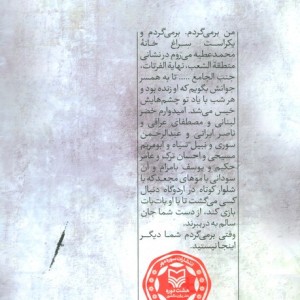 من برمی‌گردم. برمی‌گردم و
یکراست سراغ خانهٔ
محمدعطیه می‌روم در نشانی
منطقة الشعب، نهایة الفرئات،
جنب الجامع ..... تا به همسر
جوانش بگویم که او زنده بود و
هر شب با یاد تو چشم‌هایش
خیس می‌شد. امیدوارم خضر
لبنانی و مصطفای عراقی و
ناصر ایرانی و عبدالرحمن
سوری و نبیل سیاه و ابومریم
مسیحی و احسان ترک و عامر
حکیم و یوسف بامرام و آن
سودانی با موهای مجعد که با
شلوار کوتاه در اردوگاه دنبال
کسی می‌گشت تا با او پات‌پات
بازی کند، از دست شما جان
سالم به در ببرند.
وقتی برمی‌گردم شما دیگر
اینجا نیستید.